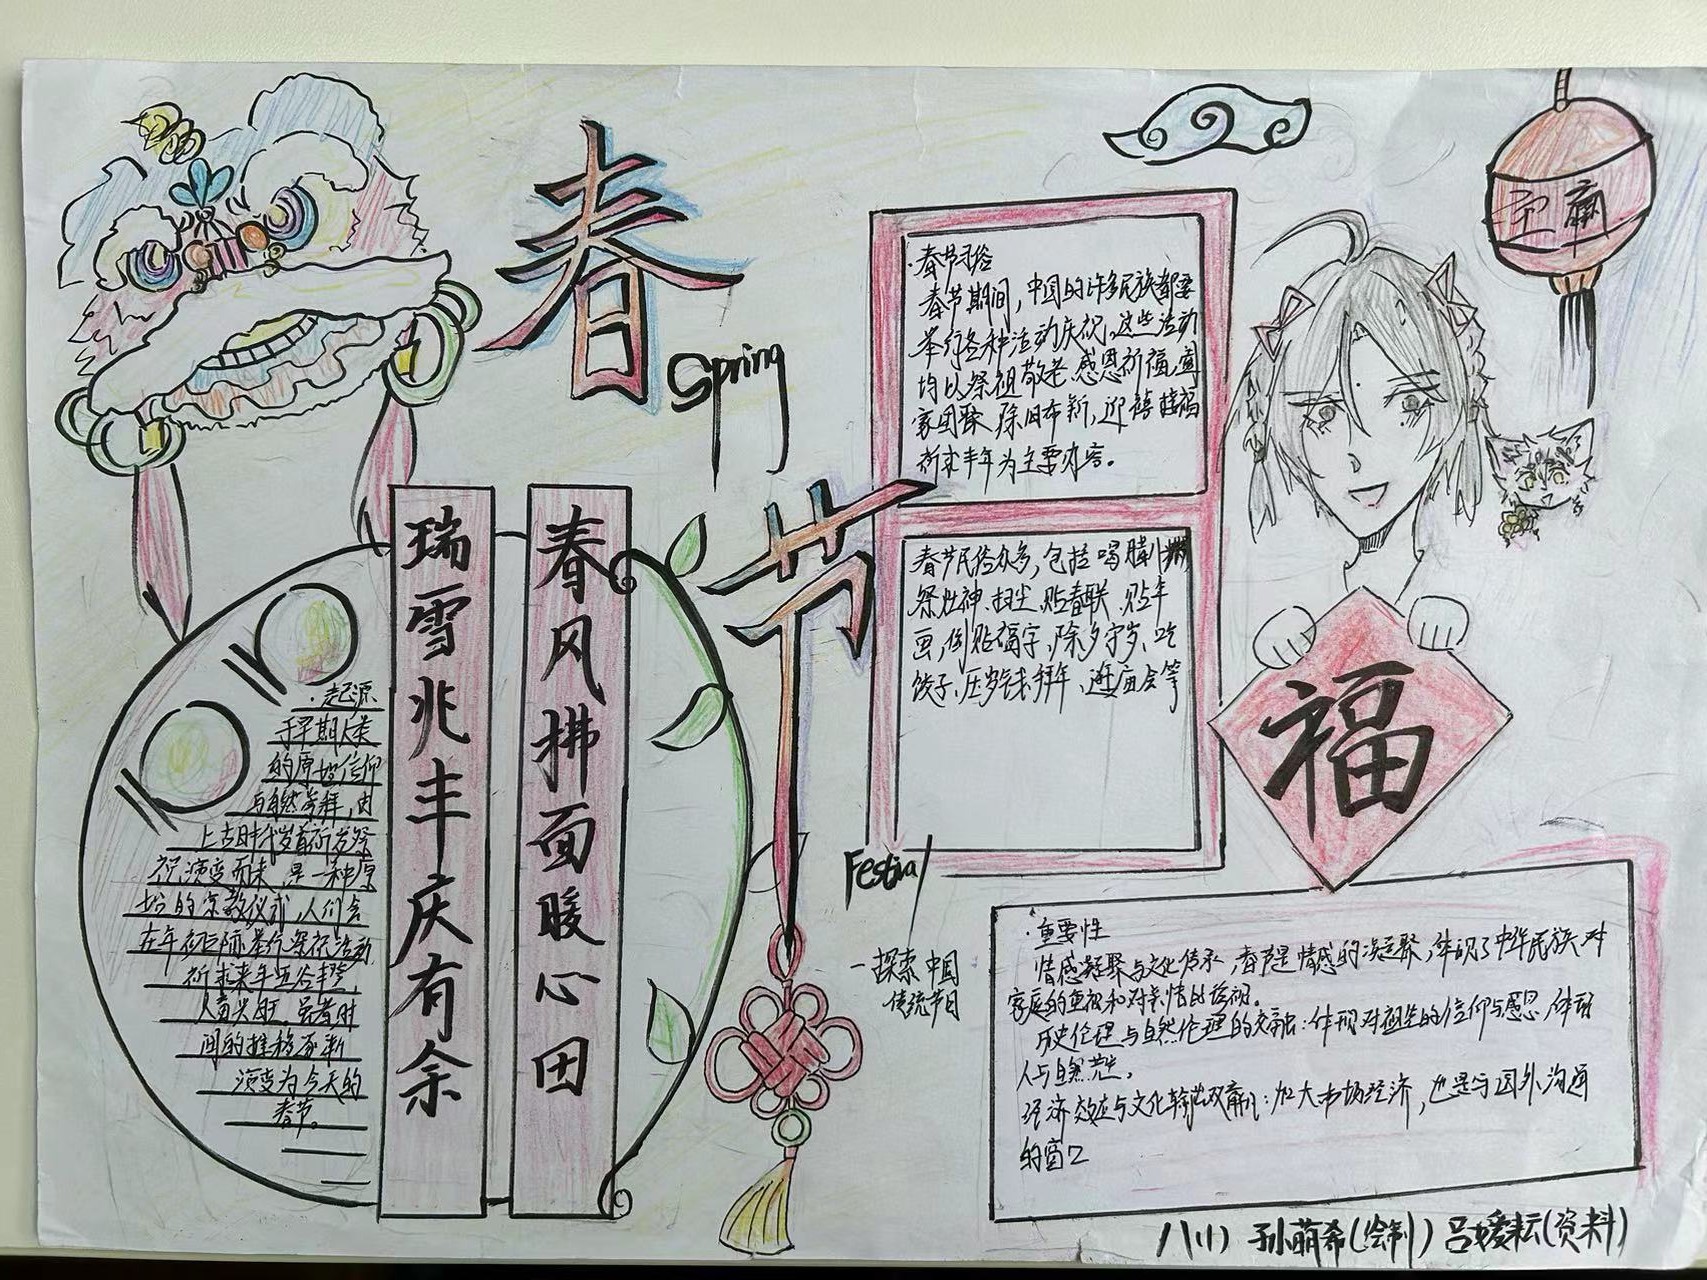 春
Spring
节
Festival
一探索中国
传统节日
瑞雪兆丰庆有余
春风拂面暖心田
·起源
于早期人类
的原始信仰
与自然崇拜,由
上古时代岁首祈岁祭
祝演变而来,是一种原
始的宗教仪式,人们会
在年初之际举行祭祝活动
祈求来年五谷丰登,
人畜兴旺,
间的推移逐渐
演变为今天的
春节。
·春节习俗
春节期间,中国的许多民族都要
举行各种活动庆祝,这些活动
均以祭祖敬老、感恩祈福、
家团聚、除旧布新,迎禧接福
祈求丰年为主要内容。
春节民俗众多,包括喝腊八粥
祭灶神、扫尘、贴春联、贴年
画,倒贴福字,除夕守岁、吃
饺子、压岁钱、拜年、逛庙会等
福
·重要性
情感凝聚与文化传承,春节是情感的凝聚,体现了中华民族对
家庭的重视和对亲情的珍视。
历史伦理与自然伦理的交融:体现对祖先的信仰与感恩,体现
人与自然
经济效应与文化输出双赢:加大市场经济,也是与国外沟通
的窗口
八(1) 孙萌希(绘制) 吕媛耘(资料)